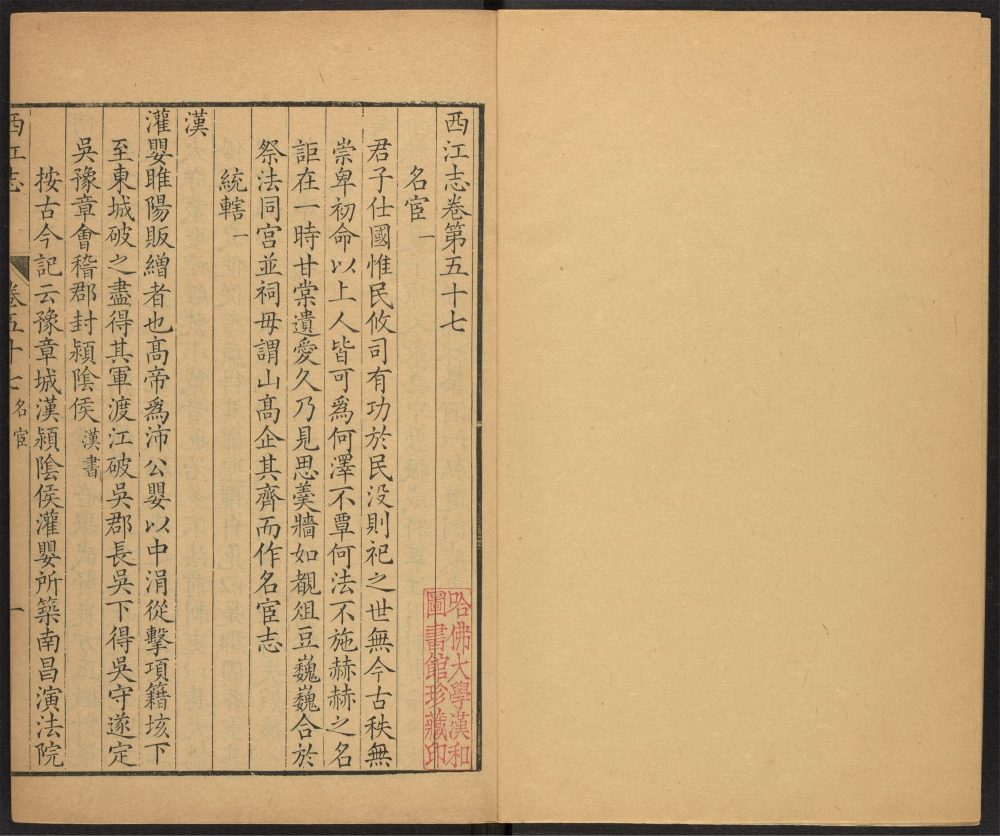 西江志卷第五十七
名宦一
君子仕國惟民攸司有功於民没則祀之世無今古秩無
崇卑初命以上人皆可爲何澤不覃何法不施赫赫之名
詎在一時甘棠遺愛久乃見思羹牆如覩俎豆巍巍合於
祭法同宫並祠毋謂山髙企其齊而作名宦志
統轄一
漢
灌嬰睢陽販繒者也髙帝爲沛公嬰以中涓從擊項籍垓下
至東城破之盡得其軍渡江破吳郡長吳下得吳守遂定
吳豫章會稽郡封潁陰侯漢書
按古今記云豫章城漢潁陰侯灌嬰所築南昌演法院
西江志 卷五十七 名宦 一
哈佛大學漢和
圖書館珍藏印